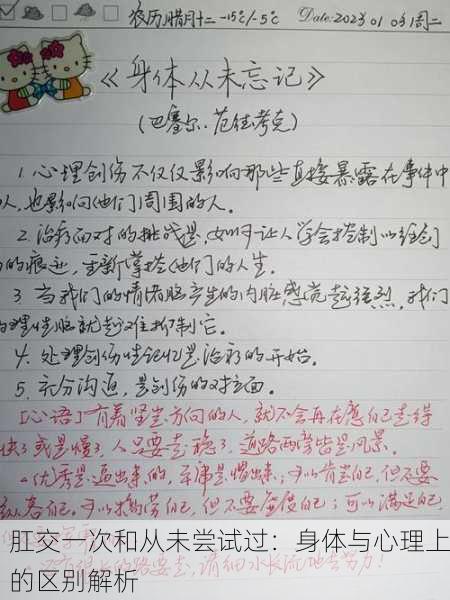 农历腊月十二 -15℃/-5℃ Date: 2023 01 03 周二
《身体从未忘记》
(巴塞尔·范德考克)
1. 心理创伤不仅仅影响那些直接暴露在事件中
人,也影响他们周围的人。
2. 治疗面对的挑战是,如何让人学会控制以经
的痕迹,重新掌控他们的人生。
3. 当我们的情绪脑产生的内脏感觉越强烈,我们
理性脑就越难抑制它。
4. 处理创伤性记忆是治疗的开始。
5. 充分沟通,是创伤的对立面。
[心语] 有着坚定方向的人,就不会再在意自己走得
快了或是慢了,人只要走稳了,道路两旁皆是风景。
优秀是逼出来的,平庸是惯出来;可以肯定自己,但不要
自己。可以 自己,但不要 自己;可以满足自己
肛交一次和从未尝试过:身体与心理上
的区别解析